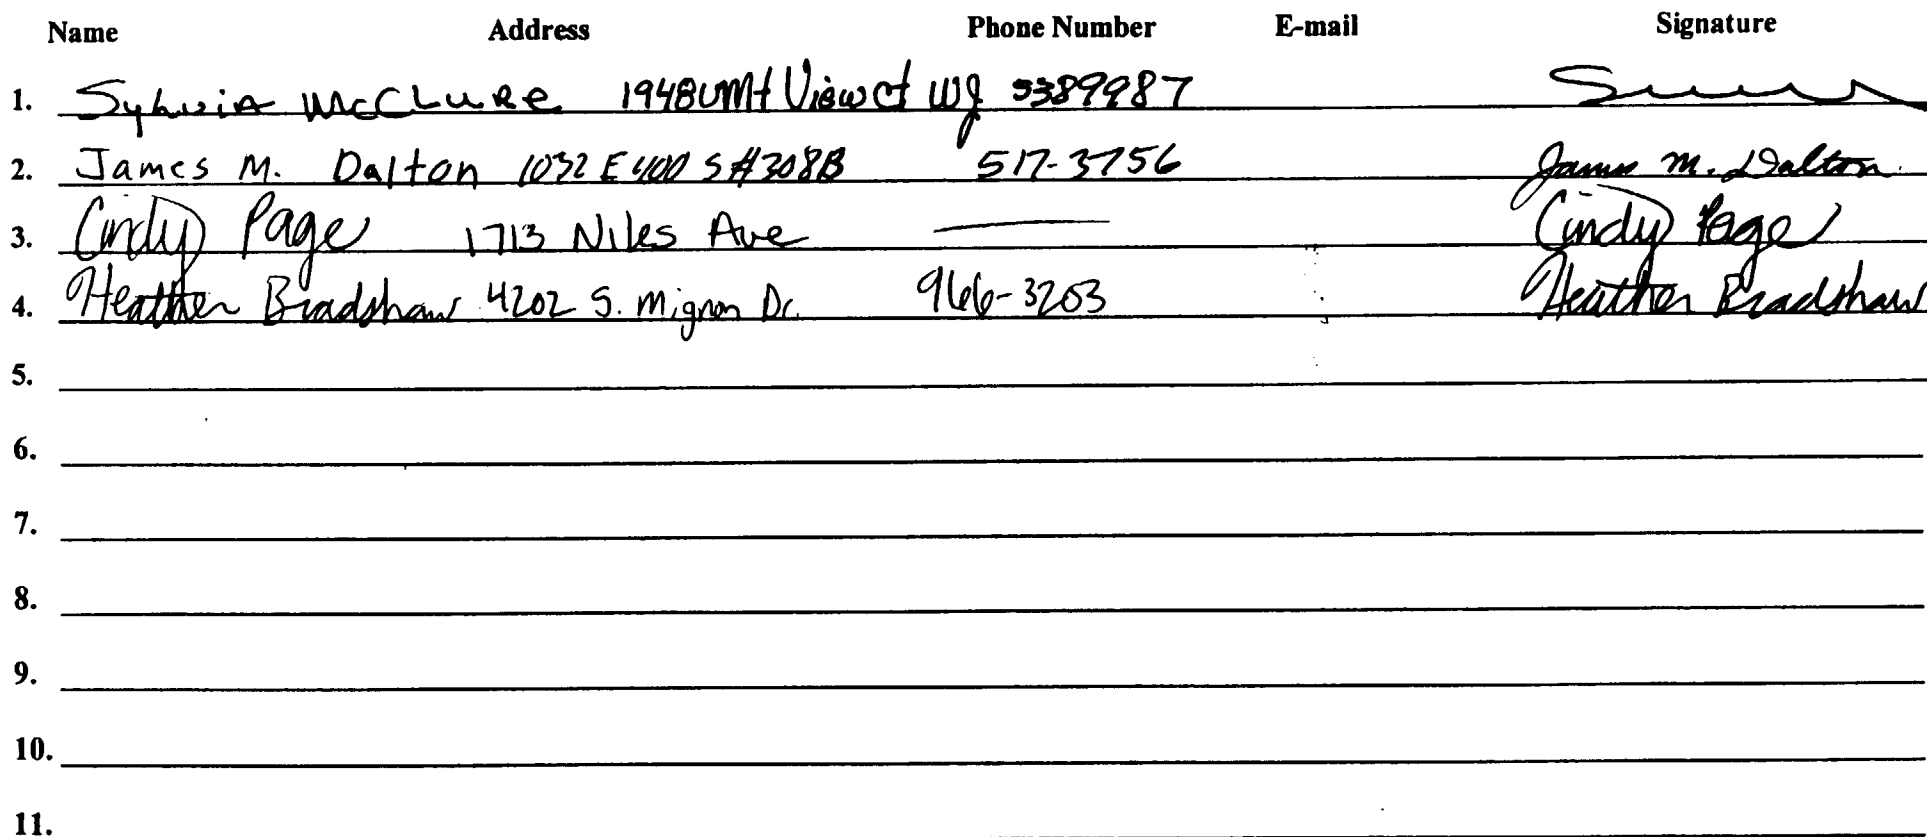 Name Address Phone Number E-mail Signature
1. Sylvia McClure 1948 Mt View ct WJ 5389987
2. James M. Dalton 1032 E 400 S #308B 517-3756 James M. Dalton
3. Cindy Page 1713 Niles Ave — Cindy Page
4. Heather Bradshaw 4202 S. Mignon Dr. 966-3203 Heather Bradshaw
5.
6.
7.
8.
9.
10.
11.